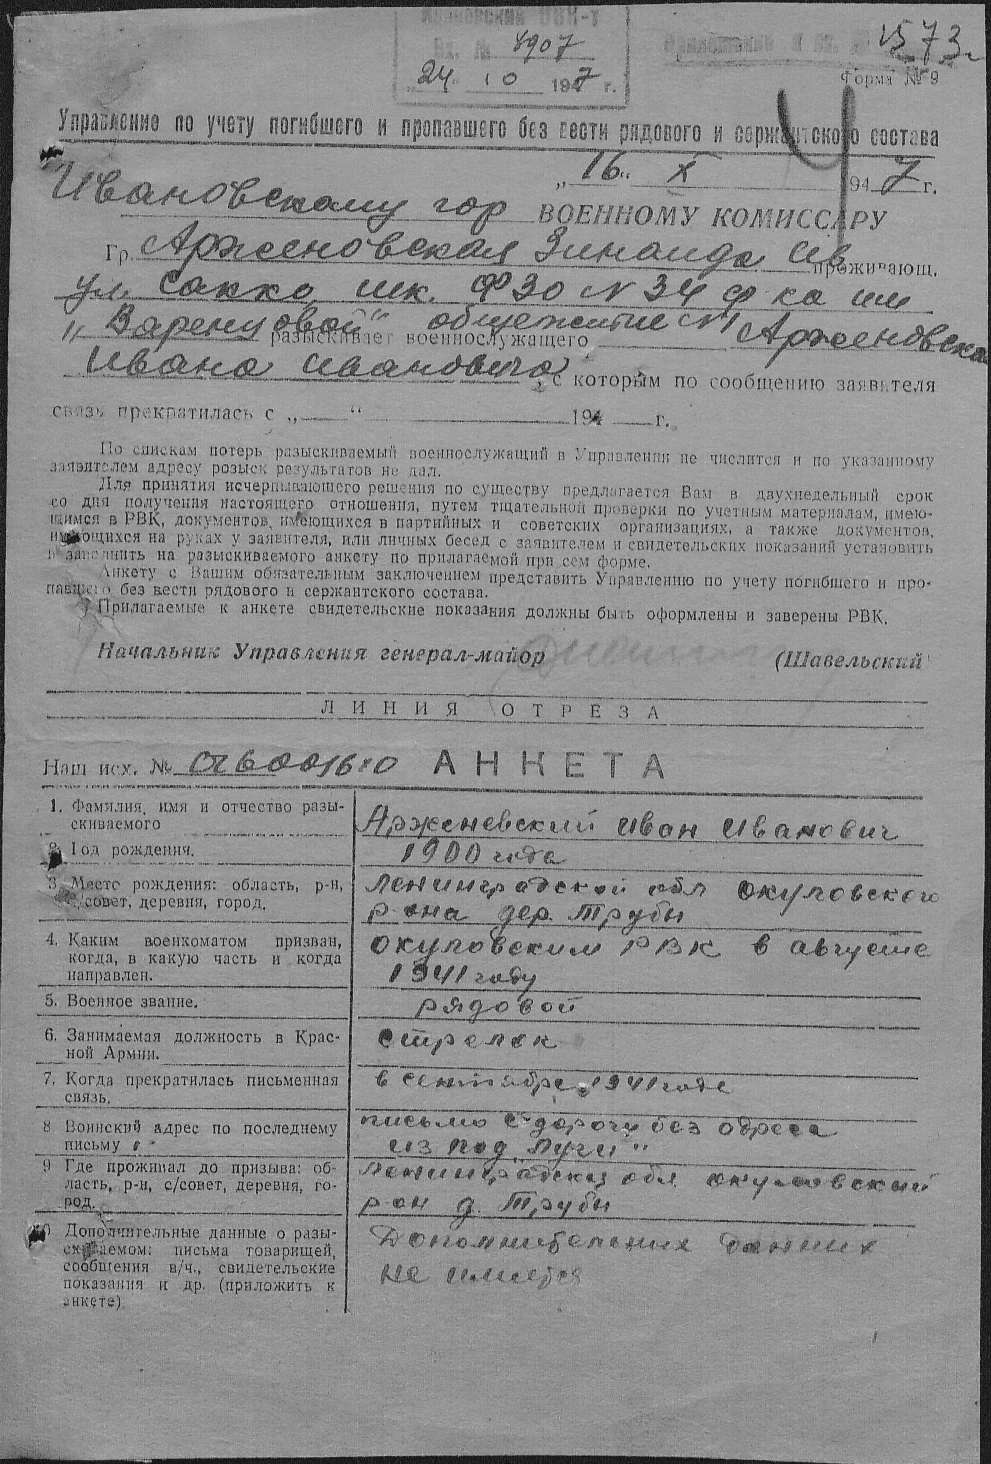 Ивановский ОВК-т
Вх. № 4907
24 10 1947 г.
1573
Форма № 9
Управление по учету погибшего и пропавшего без вести рядового и сержантского состава
„16" X 1947 г.
Ивановскому гор ВОЕННОМУ КОМИССАРУ
Гр. Арженовская Зинаида Ив проживающ.
ул. Сакко шк. ФЗО N 34 ф-ка им
„Варенцовой" общежитие N1
разыскивает военнослужащего Арженовского
Ивана Ивановича, с которым по сообщению заявителя
связь прекратилась с „ " 194 г.
По спискам потерь разыскиваемый военнослужащий в Управлении не числится и по указанному
заявителем адресу розыск результатов не дал.
Для принятия исчерпывающего решения по существу предлагается Вам в двухнедельный срок
со дня получения настоящего отношения, путем тщательной проверки по учетным материалам, имею-
щимся в РВК, документов, имеющихся в партийных и советских организациях, а также документов,
имеющихся на руках у заявителя, или личных бесед с заявителем и свидетельских показаний установить
и заполнить на разыскиваемого анкету по прилагаемой при сем форме.
Анкету с Вашим обязательным заключением представить Управлению по учету погибшего и про-
павшего без вести рядового и сержантского состава.
Прилагаемые к анкете свидетельские показания должны быть оформлены и заверены РВК.
Начальник Управления генерал-майор (Шавельский)
ЛИНИЯ ОТРЕЗА
Наш исх. № АНКЕТА
1. Фамилия, имя и отчество разы-
скиваемого
Арженевский Иван Иванович
2. Год рождения.
1900 года
3. Место рождения: область, р-н,
с/совет, деревня, город.
Ленинградской обл окуловского
р-она дер. Трубы
4. Каким военкоматом призван,
когда, в какую часть и когда
направлен.
окуловским РВК в августе
1941 году
5. Военное звание.
рядовой
6. Занимаемая должность в Крас-
ной Армии.
стрелок
7. Когда прекратилась письменная
связь.
в сентябре 1941 года
8 Воинский адрес по последнему
письму
письмо с дороги без адреса
из под „Луги"
9 Где проживал до призыва: об-
ласть, р-н, с/совет, деревня, го-
род.
Ленинградская обл окуловский
р-он д. Трубы
10 Дополнительные данные о разы-
скиваемом: письма товарищей,
сообщения в/ч., свидетельские
показания и др. (приложить к
анкете)
Дополнительных данних
не имеется